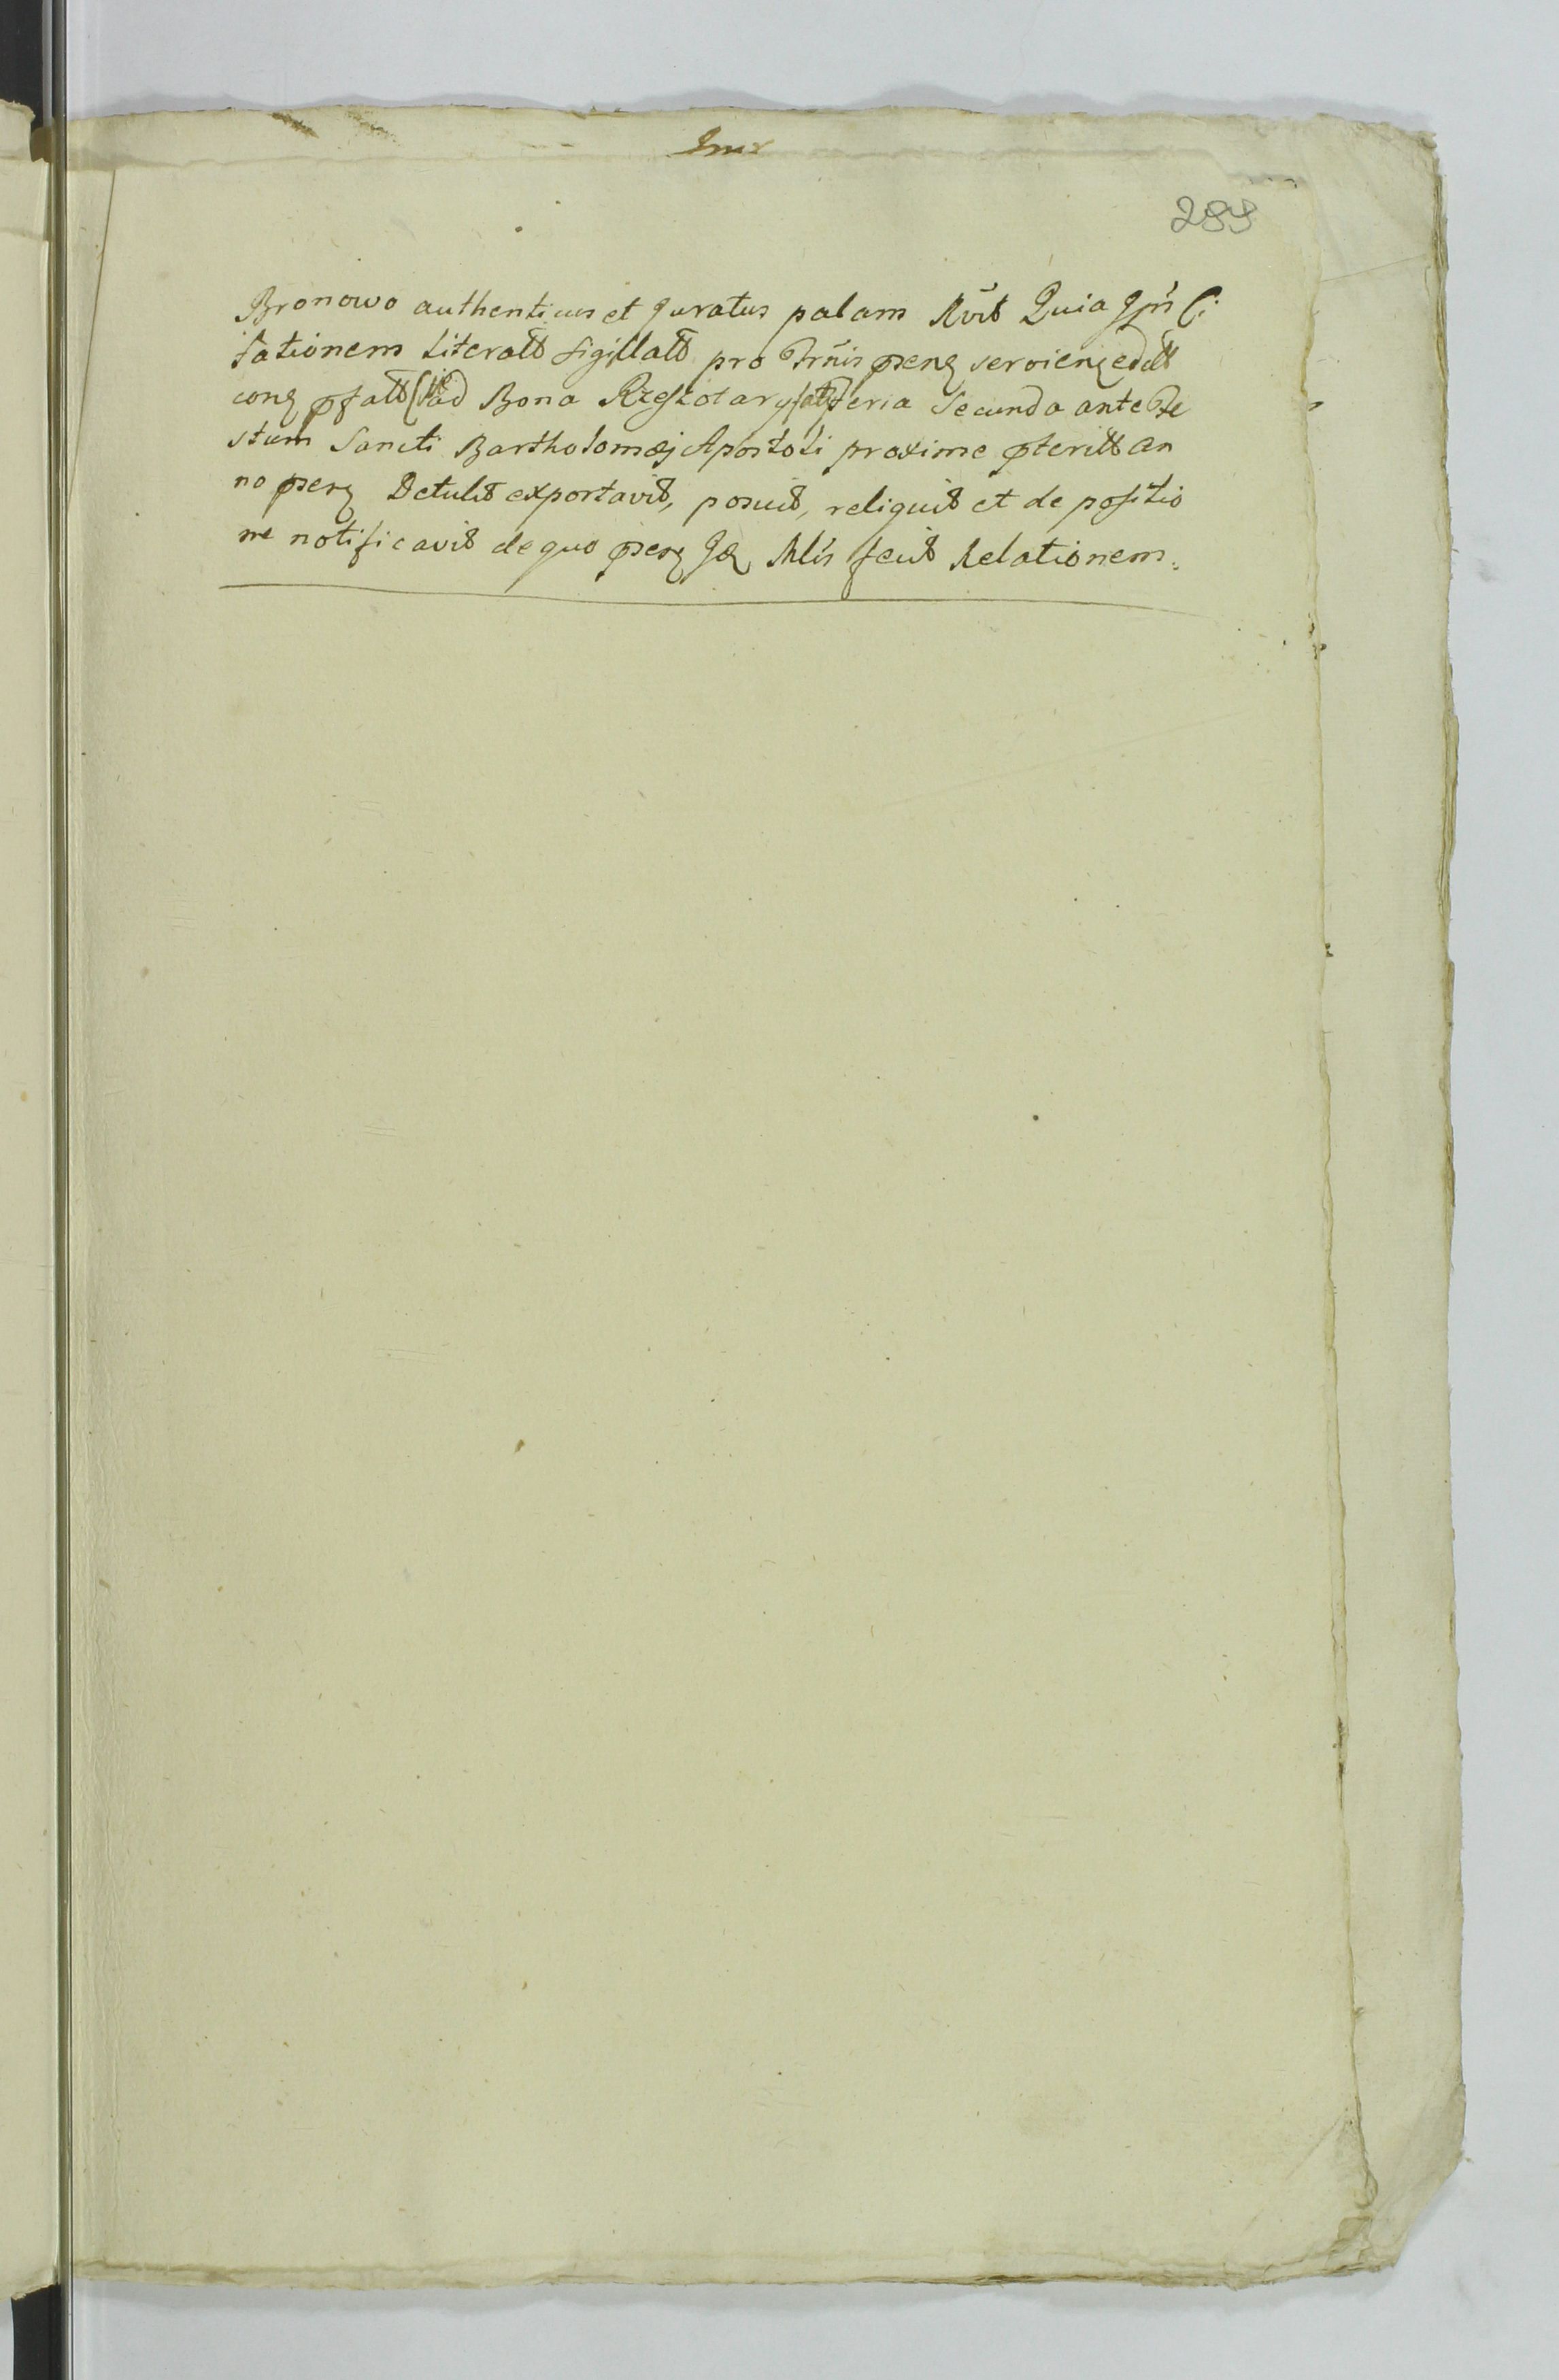 299
Bronowo authenticus et Juratus palam Rvit Quia Ipse Ci
tationem literatt Sigillatt pro Trnis pserz servienz edatt
conz pfatt ad Bona Rzeszotary feria Secunda ante Fe
stum Sancti Bartholomæj Apostoli proxime pteritt an
no psenz Detulit exportavit, posuit, reliquit et de positio
ne notificavit de quo psenz Rlis fecit Relationem.